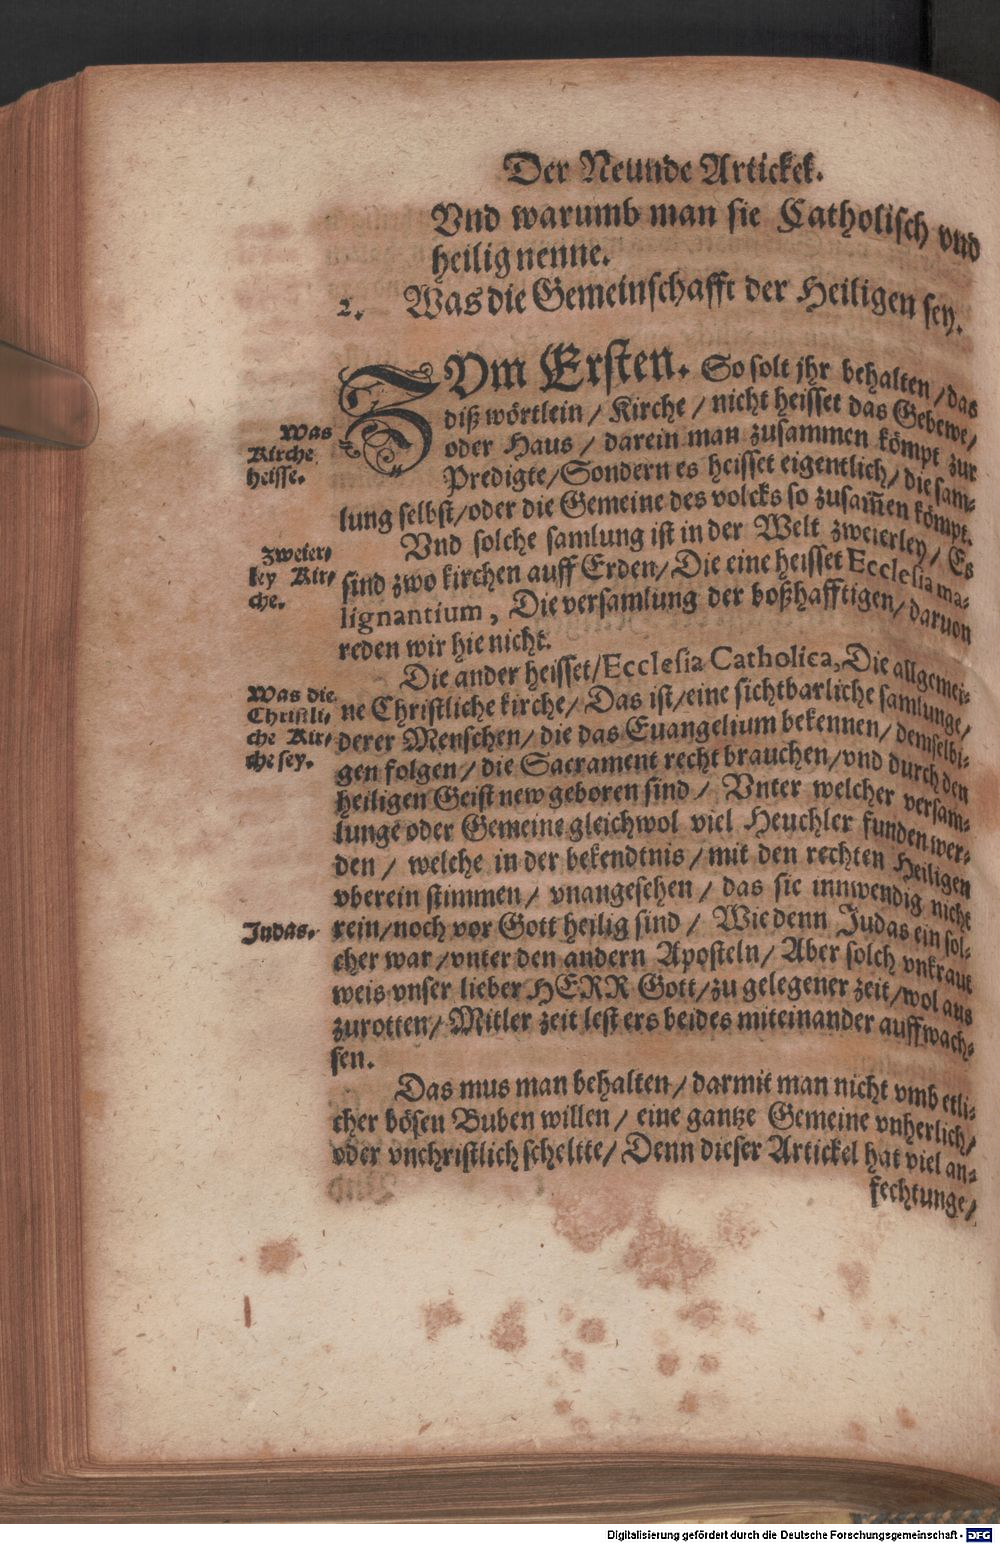 Der Neunde Artickek.
Vnd warumb man sie Catholisch vnd
heilig nenne.
2. Was die Gemeinschafft der Heiligen sey.
ZVm Ersten. So solt jhr behalten / das
diß wörtlein / Kirche / nicht heisset das Gebewe /
oder Haus / darein man zusammen kömpt zur
Predigte / Sondern es heisset eigentlich / die sam⸗
lung selbst / oder die Gemeine des volcks so zusam̅en kömpt.
Was
Kirche
heisse.
Vnd solche samlung ist in der Welt zweierley / Es
sind zwo kirchen auff Erden / Die eine heisset Ecclesia ma⸗
lignantium, Die versamlung der boßhafftigen / daruon
reden wir hie nicht.
Zweier⸗
ley Kir⸗
che.
Die ander heisset / Ecclesia Catholica, Die allgemei⸗
ne Christliche kirche / Das ist / eine sichtbarliche samlunge /
derer Menschen / die das Euangelium bekennen / demselbi⸗
gen folgen / die Sacrament recht brauchen / vnd durch den
heiligen Geist new geboren sind / Vnter welcher versam⸗
lunge oder Gemeine gleichwol viel Heuchler funden wer⸗
den / welche in der bekendtnis / mit den rechten Heiligen
vberein stimmen / vnangesehen / das sie innwendig nicht
rein / noch vor Gott heilig sind / Wie denn Judas ein sol⸗
cher war / vnter den andern Aposteln / Aber solch vnkraut
weis vnser lieber HERR Gott / zu gelegener zeit / wol aus
zurotten / Mitler zeit lest ers beides miteinander auffwach⸗
sen.
Was die
Christli⸗
che Kir⸗
che sey.
Judas.
Das mus man behalten / darmit man nicht vmb etli⸗
cher bösen Buben willen / eine gantze Gemeine vnherlich /
oder vnchristlich scheltte / Denn dieser Artickel hat viel an⸗
fechtunge /
Digitalisierung gefördert durch die Deutsche Forschungsgemeinschaft - DFG